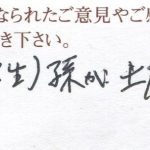 なられたご意見やご
き下さい。
生)孫が